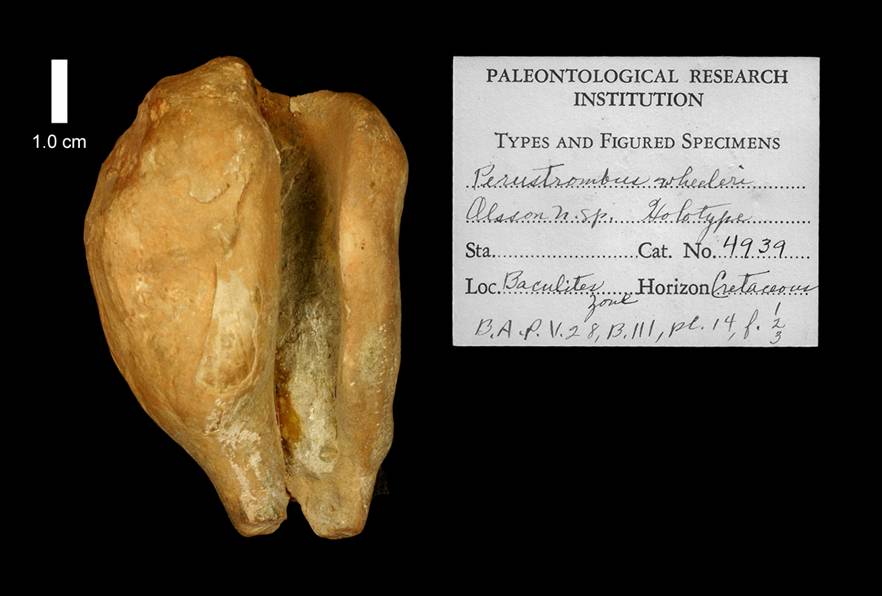 1.0 cm
PALEONTOLOGICAL RESEARCH
INSTITUTION
TYPES AND FIGURED SPECIMENS
Perustrombus wheeleri
Olsson n. sp. Holotype
Sta. Cat. No. 4939
Loc. Baculites zone Horizon Cretaceous
B.A.P. V. 28, B. 111, pl. 14, f. 1
2
3